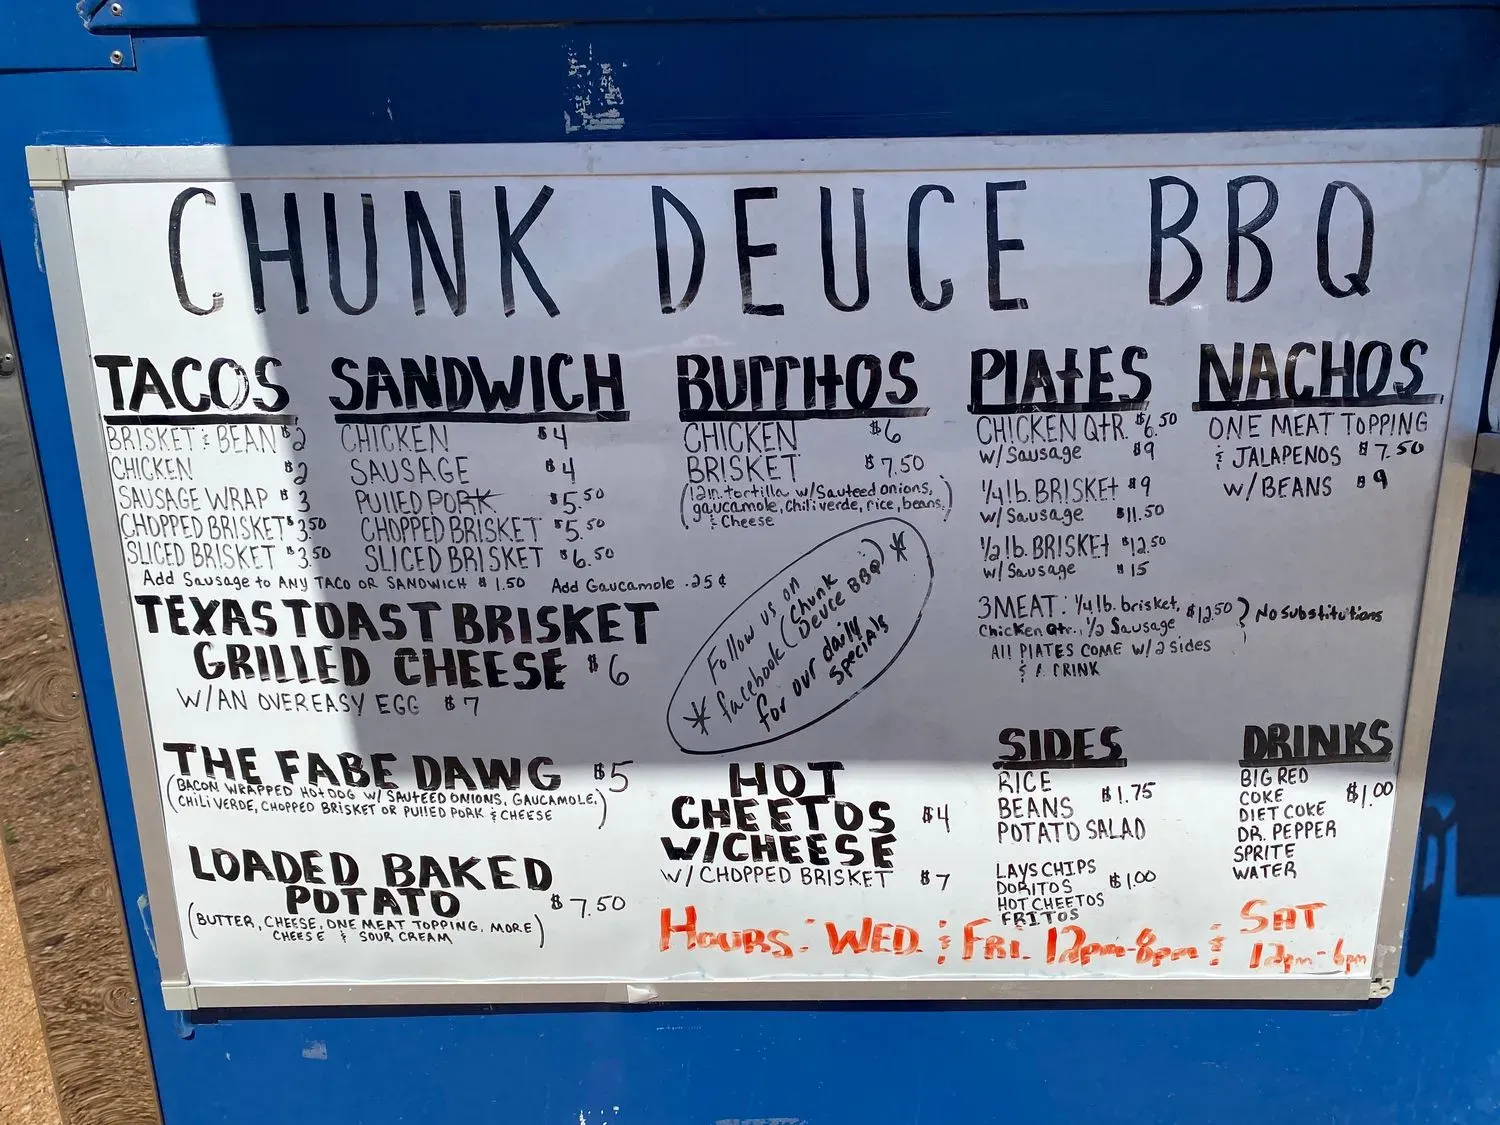 CHUNK DEUCE BBQ
TACOS
BRISKET & BEAN $2
CHICKEN $2
SAUSAGE WRAP $3
CHOPPED BRISKET $3.50
SLICED BRISKET $3.50
SANDWICH
CHICKEN $4
SAUSAGE $4
PULLED PORK $5.50
CHOPPED BRISKET $5.50
SLICED BRISKET $6.50
Add Sausage to ANY TACO OR SANDWICH $1.50 Add Gaucamole .25¢
BURRITOS
CHICKEN $6
BRISKET $7.50
(12in. tortilla w/Sauteed onions,
gaucamole, chili verde, rice, beans,
& Cheese)
PLATES
CHICKEN QTR. $6.50
w/Sausage $9
1/4 lb. BRISKET $9
w/Sausage $11.50
1/2 lb. BRISKET $12.50
w/Sausage $15
3 MEAT: 1/4 lb. brisket, $12.50 } No substitutions
Chicken Qtr., 1/2 Sausage
All PLATES COME W/ 2 Sides
& A DRINK
NACHOS
ONE MEAT TOPPING
& JALAPENOS $7.50
W/BEANS $9
TEXAS TOAST BRISKET
GRILLED CHEESE $6
W/AN OVEREASY EGG $7
* Follow us on
facebook (Chunk
Deuce BBQ) *
for our daily
specials
THE FABE DAWG $5
(BACON WRAPPED HOTDOG W/ SAUTEED ONIONS, GAUCAMOLE,
CHILI VERDE, CHOPPED BRISKET OR PULLED PORK & CHEESE)
LOADED BAKED
POTATO $7.50
(BUTTER, CHEESE, ONE MEAT TOPPING, MORE
CHEESE & SOUR CREAM)
HOT
CHEETOS $4
W/CHEESE
W/ CHOPPED BRISKET $7
SIDES
RICE
BEANS $1.75
POTATO SALAD
LAYS CHIPS
DORITOS $1.00
HOT CHEETOS
FRITOS
DRINKS
BIG RED
COKE $1.00
DIET COKE
DR. PEPPER
SPRITE
WATER
HOURS: WED. & FRI. 12pm-8pm & SAT
12pm-6pm